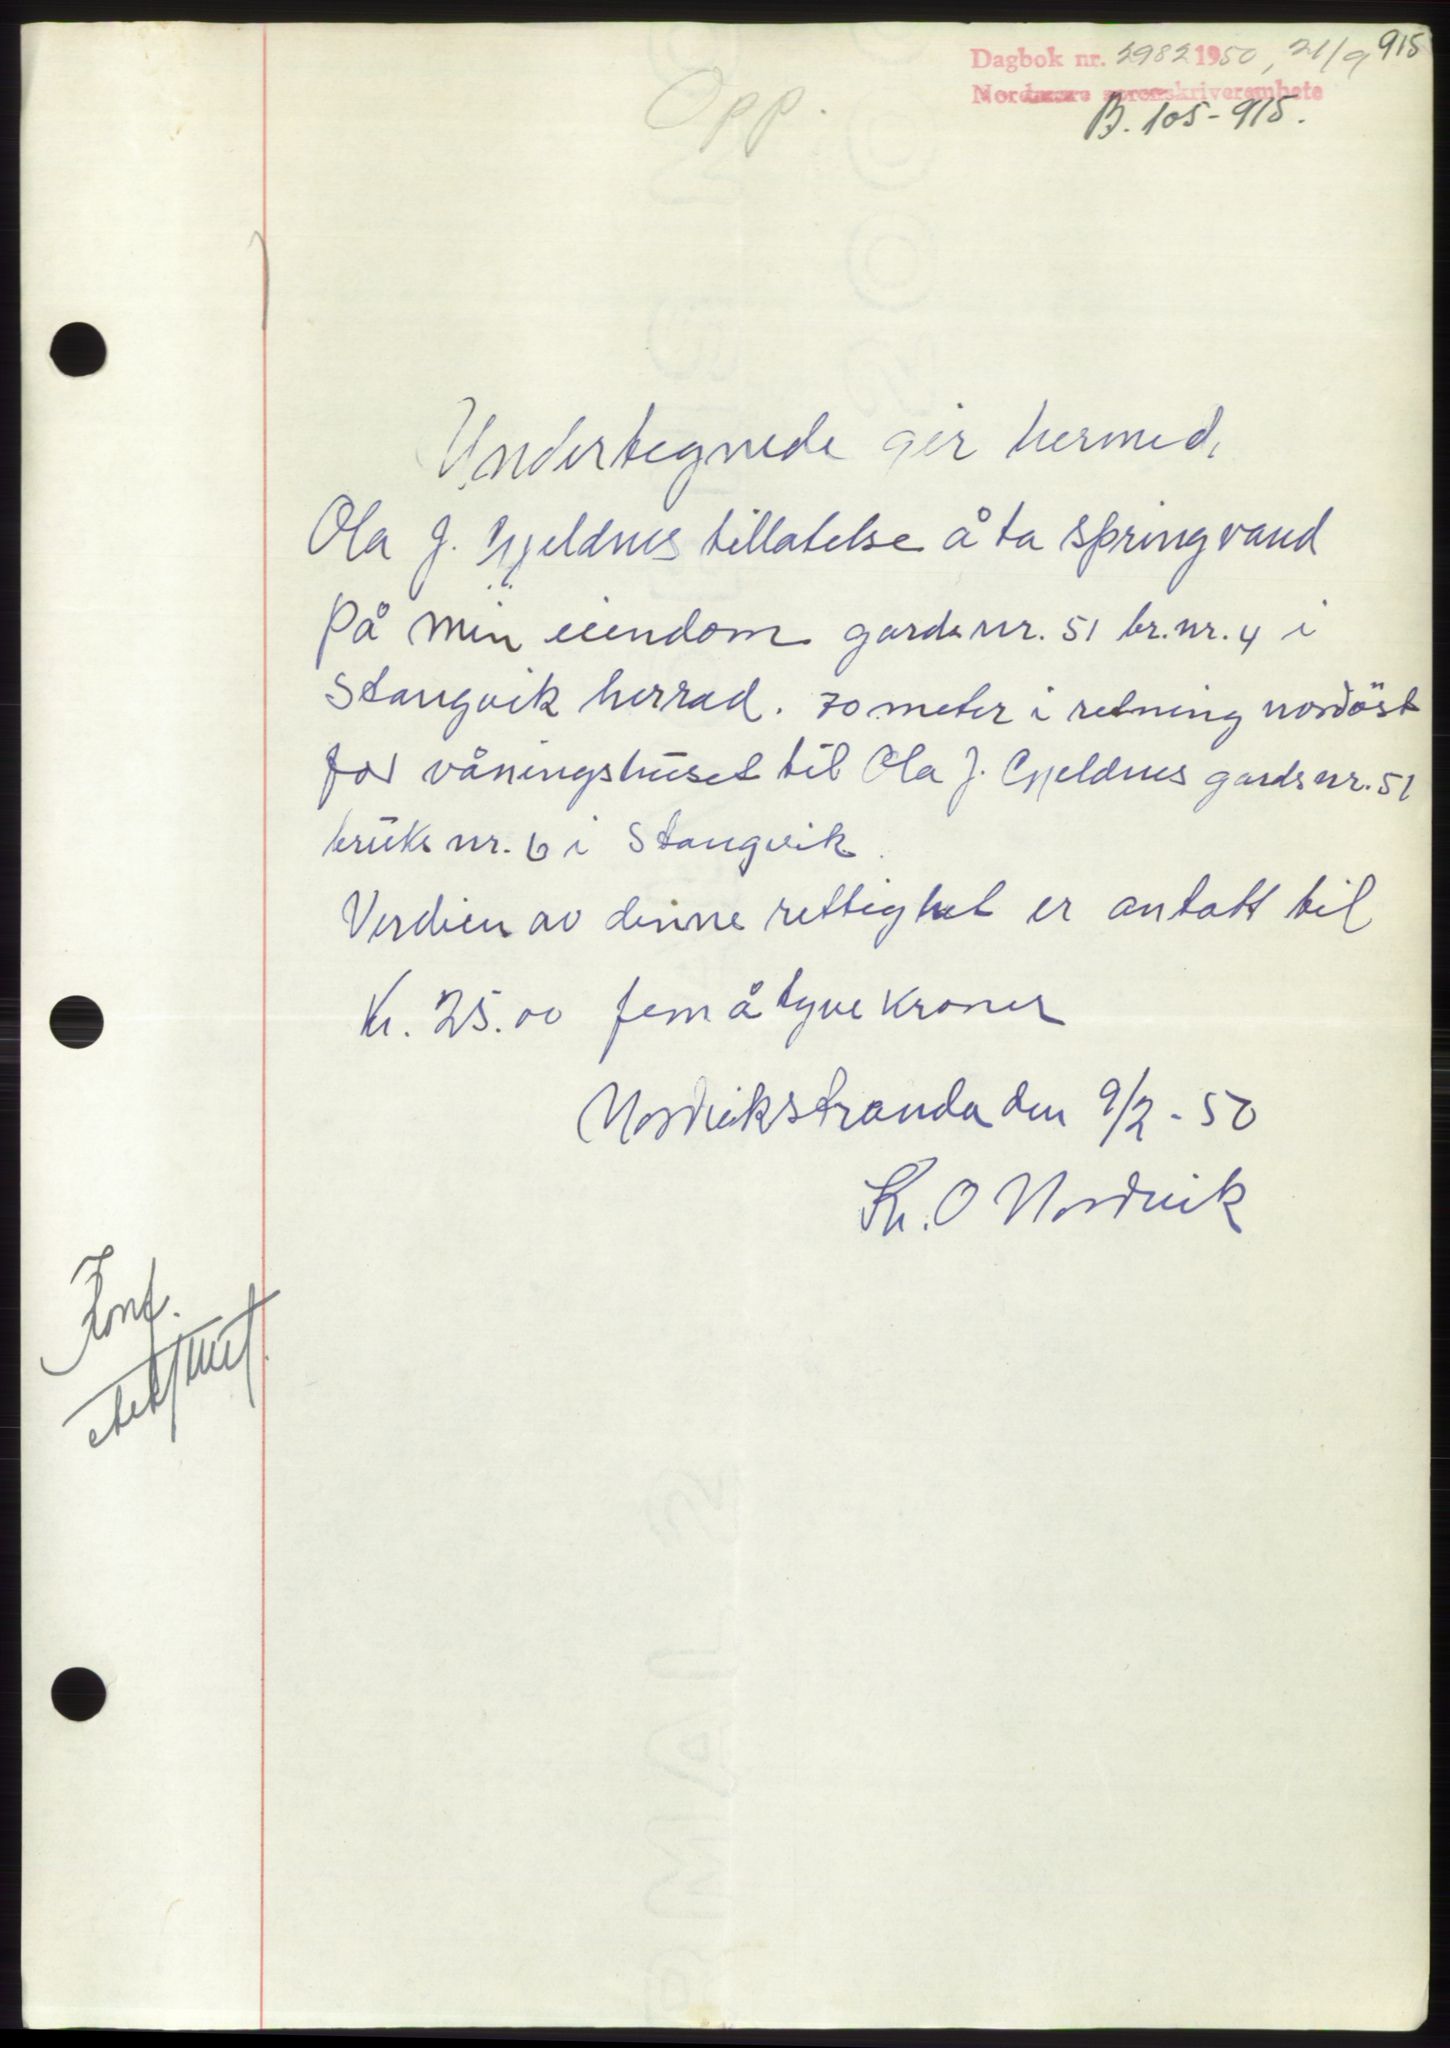 915
Dagbok nr. 2982 1950, 21/9
Nordmøre sorenskriverembete
B. 105-915.
Opp.
Undertegnede gir hermed,
Ola J. Gjeldnes tillatelse å ta springvand
på min eiendom gards nr. 51 br. nr. 4 i
Stangvik herrad. 70 meter i retning nordöst
for våningshuset til Ola J. Gjeldnes gards nr. 51
bruks nr. 6 i Stangvik.
Verdien av denne rettighet er antatt til
Kr. 25.00 fem å tyve kroner
Nordvikstranda den 9/2 - 50
Kr. O Nordvik
Konf.